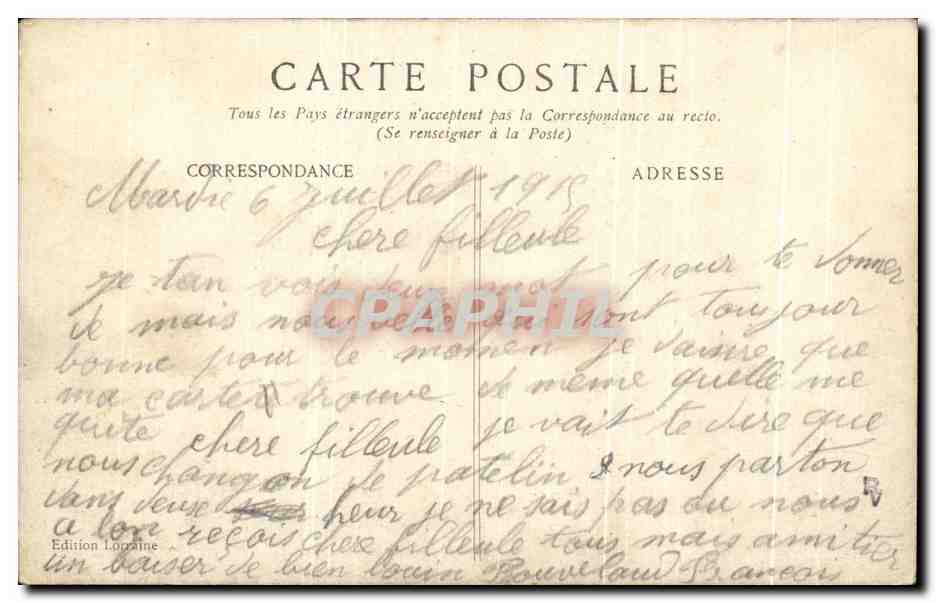 CARTE POSTALE
Tous les Pays étrangers n'acceptent pas la Correspondance au recto.
(Se renseigner à la Poste)
CORRESPONDANCE
ADRESSE
Mardie 6 juillet 1915
chere filleule
je tan vois deux mot pour te donner
de mais nouvelle qui sont toujour
bonne pour le momen je daisire que
ma carte trouve de meme quelle me
quite chere filleule je vait te dire que
nous changon de patelin & nous parton
dans deux heur je ne sais pas ou nous
a lon reçois chere filleule tous mais ami tier
un baiser de bien louin Rouveland François
Edition Lorraine
CPAPHIL
RV